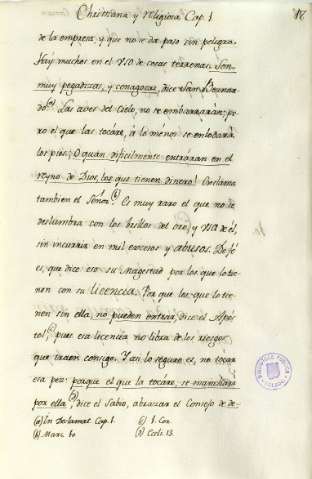 Christiana y religiosa Cap. 1
de la empresa, y que no se da paso sin peligro.
Hay muchos en el uso de cosas terrenas: son
muy pegadizas, y contagiosas, dice San Bernar
do(a). Las aves del Cielo, no se embarrarán: pe
ro el que las tocáre, á lo menos se enlodará
los pies. O quán dificilmente entrarán en el
reyno de Dios, los que tienen dinero! Exclama
tambien el Señor(b). Es muy raro el que no se
deslumbra con los brillos del oro, y usa de él,
sin incurrir en mil excesos y abusos. De fé
es, que dice eso su Magestad por los que lo tie
nen con su licencia. Porque los que lo tie
nen sin ella, no pueden entrar, dice el Após
tol(c), pues esa licencia no libra de los riesgos
que traen consigo. Y asi lo seguro es, no tocar
esa pez: porque el que la tocáre, se manchará
por ella(d), dice el Sabio, abrazar el Consejo de de-
(a) In Declamat. Cap. 1.
(c) 1. Cor.
(b) Marc. 10
(d) Eccli. 13.